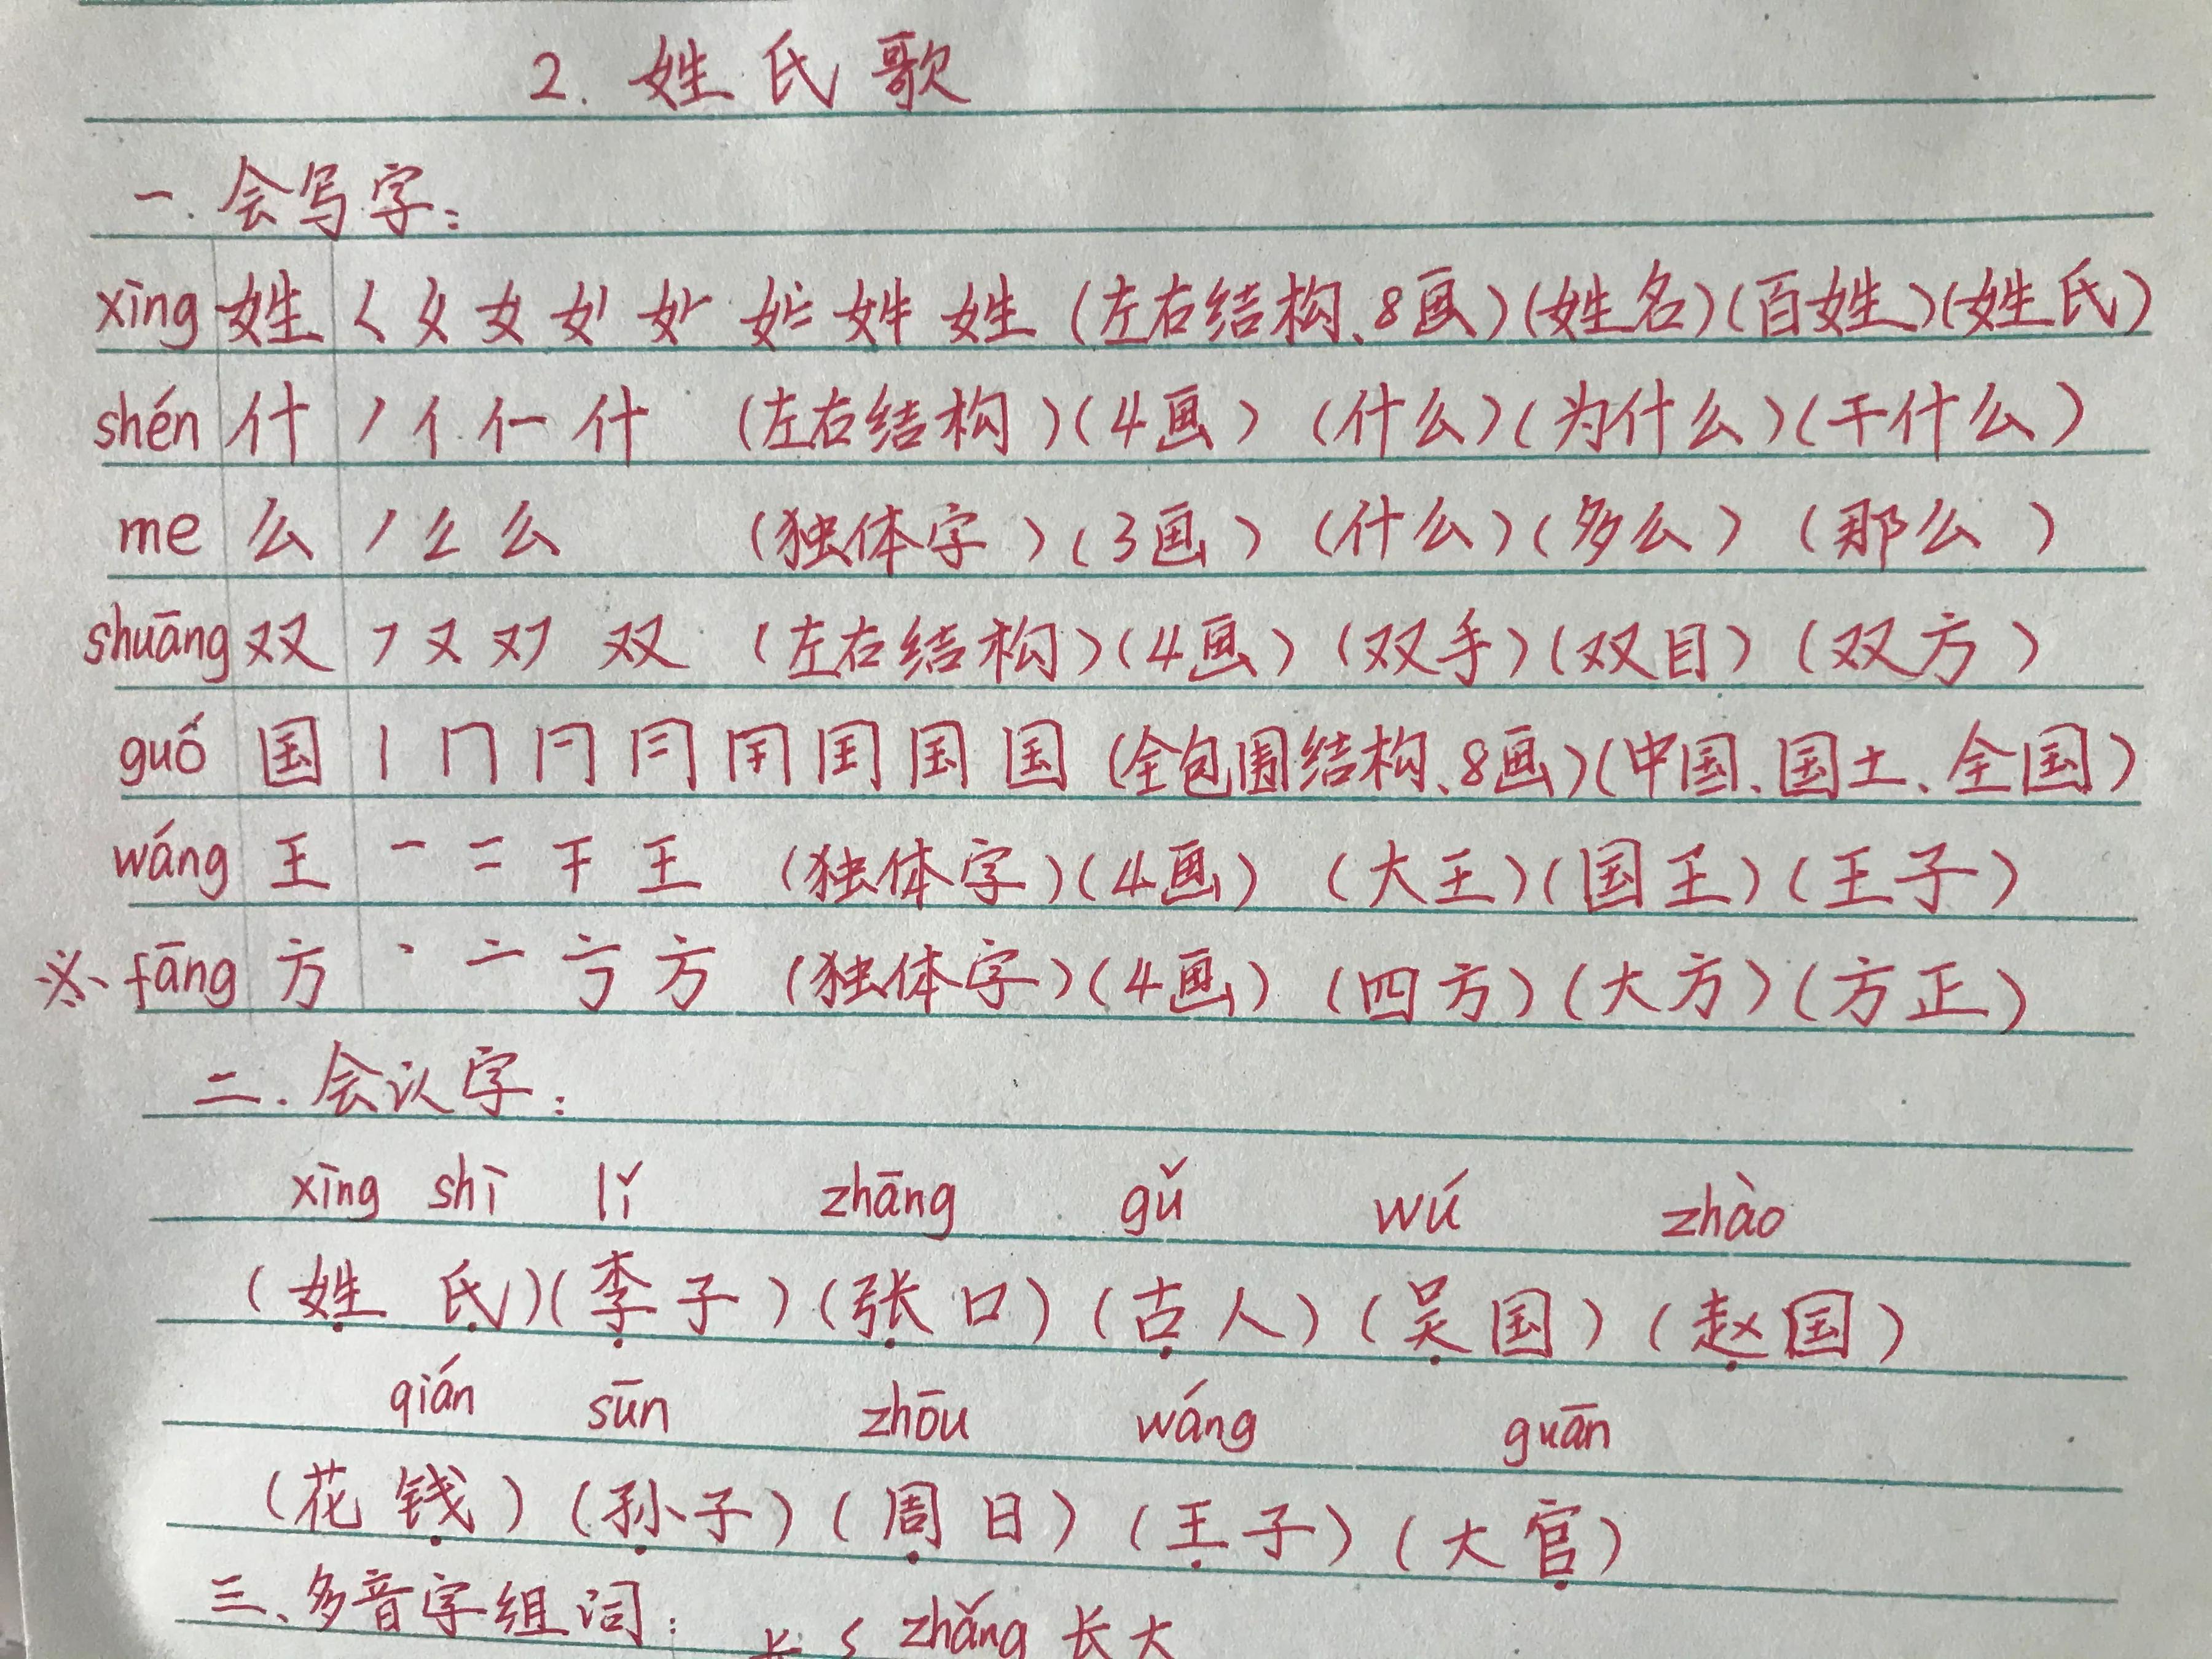 2. 姓氏歌
一. 会写字:
xìng 姓 く 夂 女 女丿 女𠂉 女二 女キ 姓 (左右结构、8画)(姓名)(百姓)(姓氏)
shén 什 丿 亻 仁 什 (左右结构)(4画)(什么)(为什么)(干什么)
me 么 丿 么 (独体字)(3画)(什么)(多么)(那么)
shuāng 双 フ 又 双 (左右结构)(4画)(双手)(双目)(双方)
guó 国 丨 冂 国 (全包围结构、8画)(中国、国土、全国)
wáng 王 一 二 干 王 (独体字)(4画)(大王)(国王)(王子)
※ fāng 方 丶 亠 亐 方 (独体字)(4画)(四方)(大方)(方正)
二. 会认字:
xìng shì lǐ zhāng gǔ wú zhào
(姓氏)(李子)(张口)(古人)(吴国)(赵国)
qián sūn zhōu wáng guān
(花钱)(孙子)(周日)(王子)(大官)
三、多音字组词: 长 zhǎng 长大